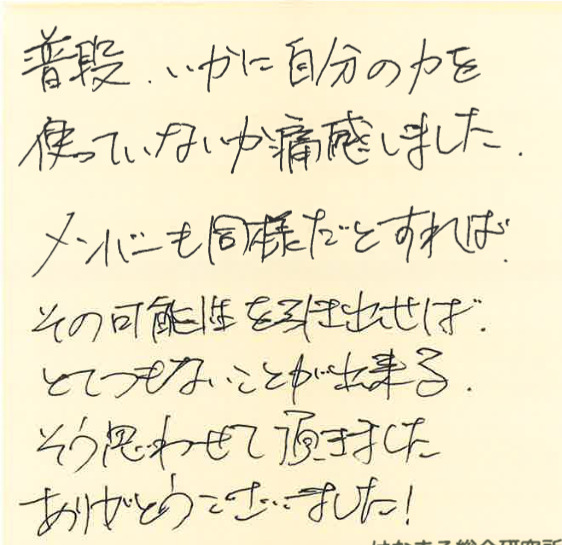 普段、いかに自分の力を
使っていないか痛感しました.
メンバーも同様だとすれば.
その可能性を引き出せば.
とてつもないことが出来る.
そう思わせて頂きました
ありがとうございました!
はなまる総合研究所